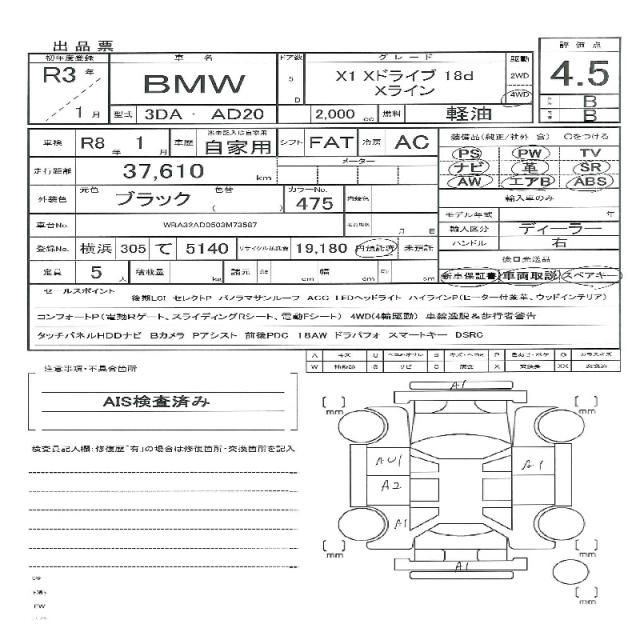 出品票
初年度登録 車 名 ドア数 グレード 駆動 評価点
R3 年 1 月 BMW 5 D X1 Xドライブ 18d Xライン 2WD 4WD 4.5
B
B
型式 3DA - AD20 2,000 cc 燃料 軽油
車検 R8 年 1 月 車歴 自家用 シフト FAT 冷房 AC
装備品(純正/社外 含) ○をつける
PS PW TV
ナビ 革 SR
AW エアB ABS
走行距離 37,610 km メーター
輸入車のみ
外装色 元色 ブラック 色替 ( カラーNo. 475
モデル年式 年
車台No. 月 日
輸入区分 ディーラー
登録No. 横浜 305 て 5140 19,180 未預託
ハンドル 右
定員 5 人 積載量 kg 諸元 cm 幅 cm cm
後日発送品
新車保証書 車両取説 スペアキー
セールスポイント
後期LCI セレクトP パノラマサンルーフ ACC LEDヘッドライト ハイラインP(ヒーター付黒革、ウッドインテリア)
コンフォートP(電動Rゲート、スライディングRシート、電動Fシート) 4WD(4輪駆動) 車線逸脱&歩行者警告
タッチパネルHDDナビ Bカメラ Pアシスト 前後PDC 18AW ドラバフォ スマートキー DSRC
注意事項・不具合箇所
AIS検査済み
検査員記入欄:修復歴"有"の場合は修復箇所・交換箇所を記入
A1
[ ] mm [ ] mm
AU1 A1
A2
A1
[ ] mm [ ] mm
A1
[ ] mm